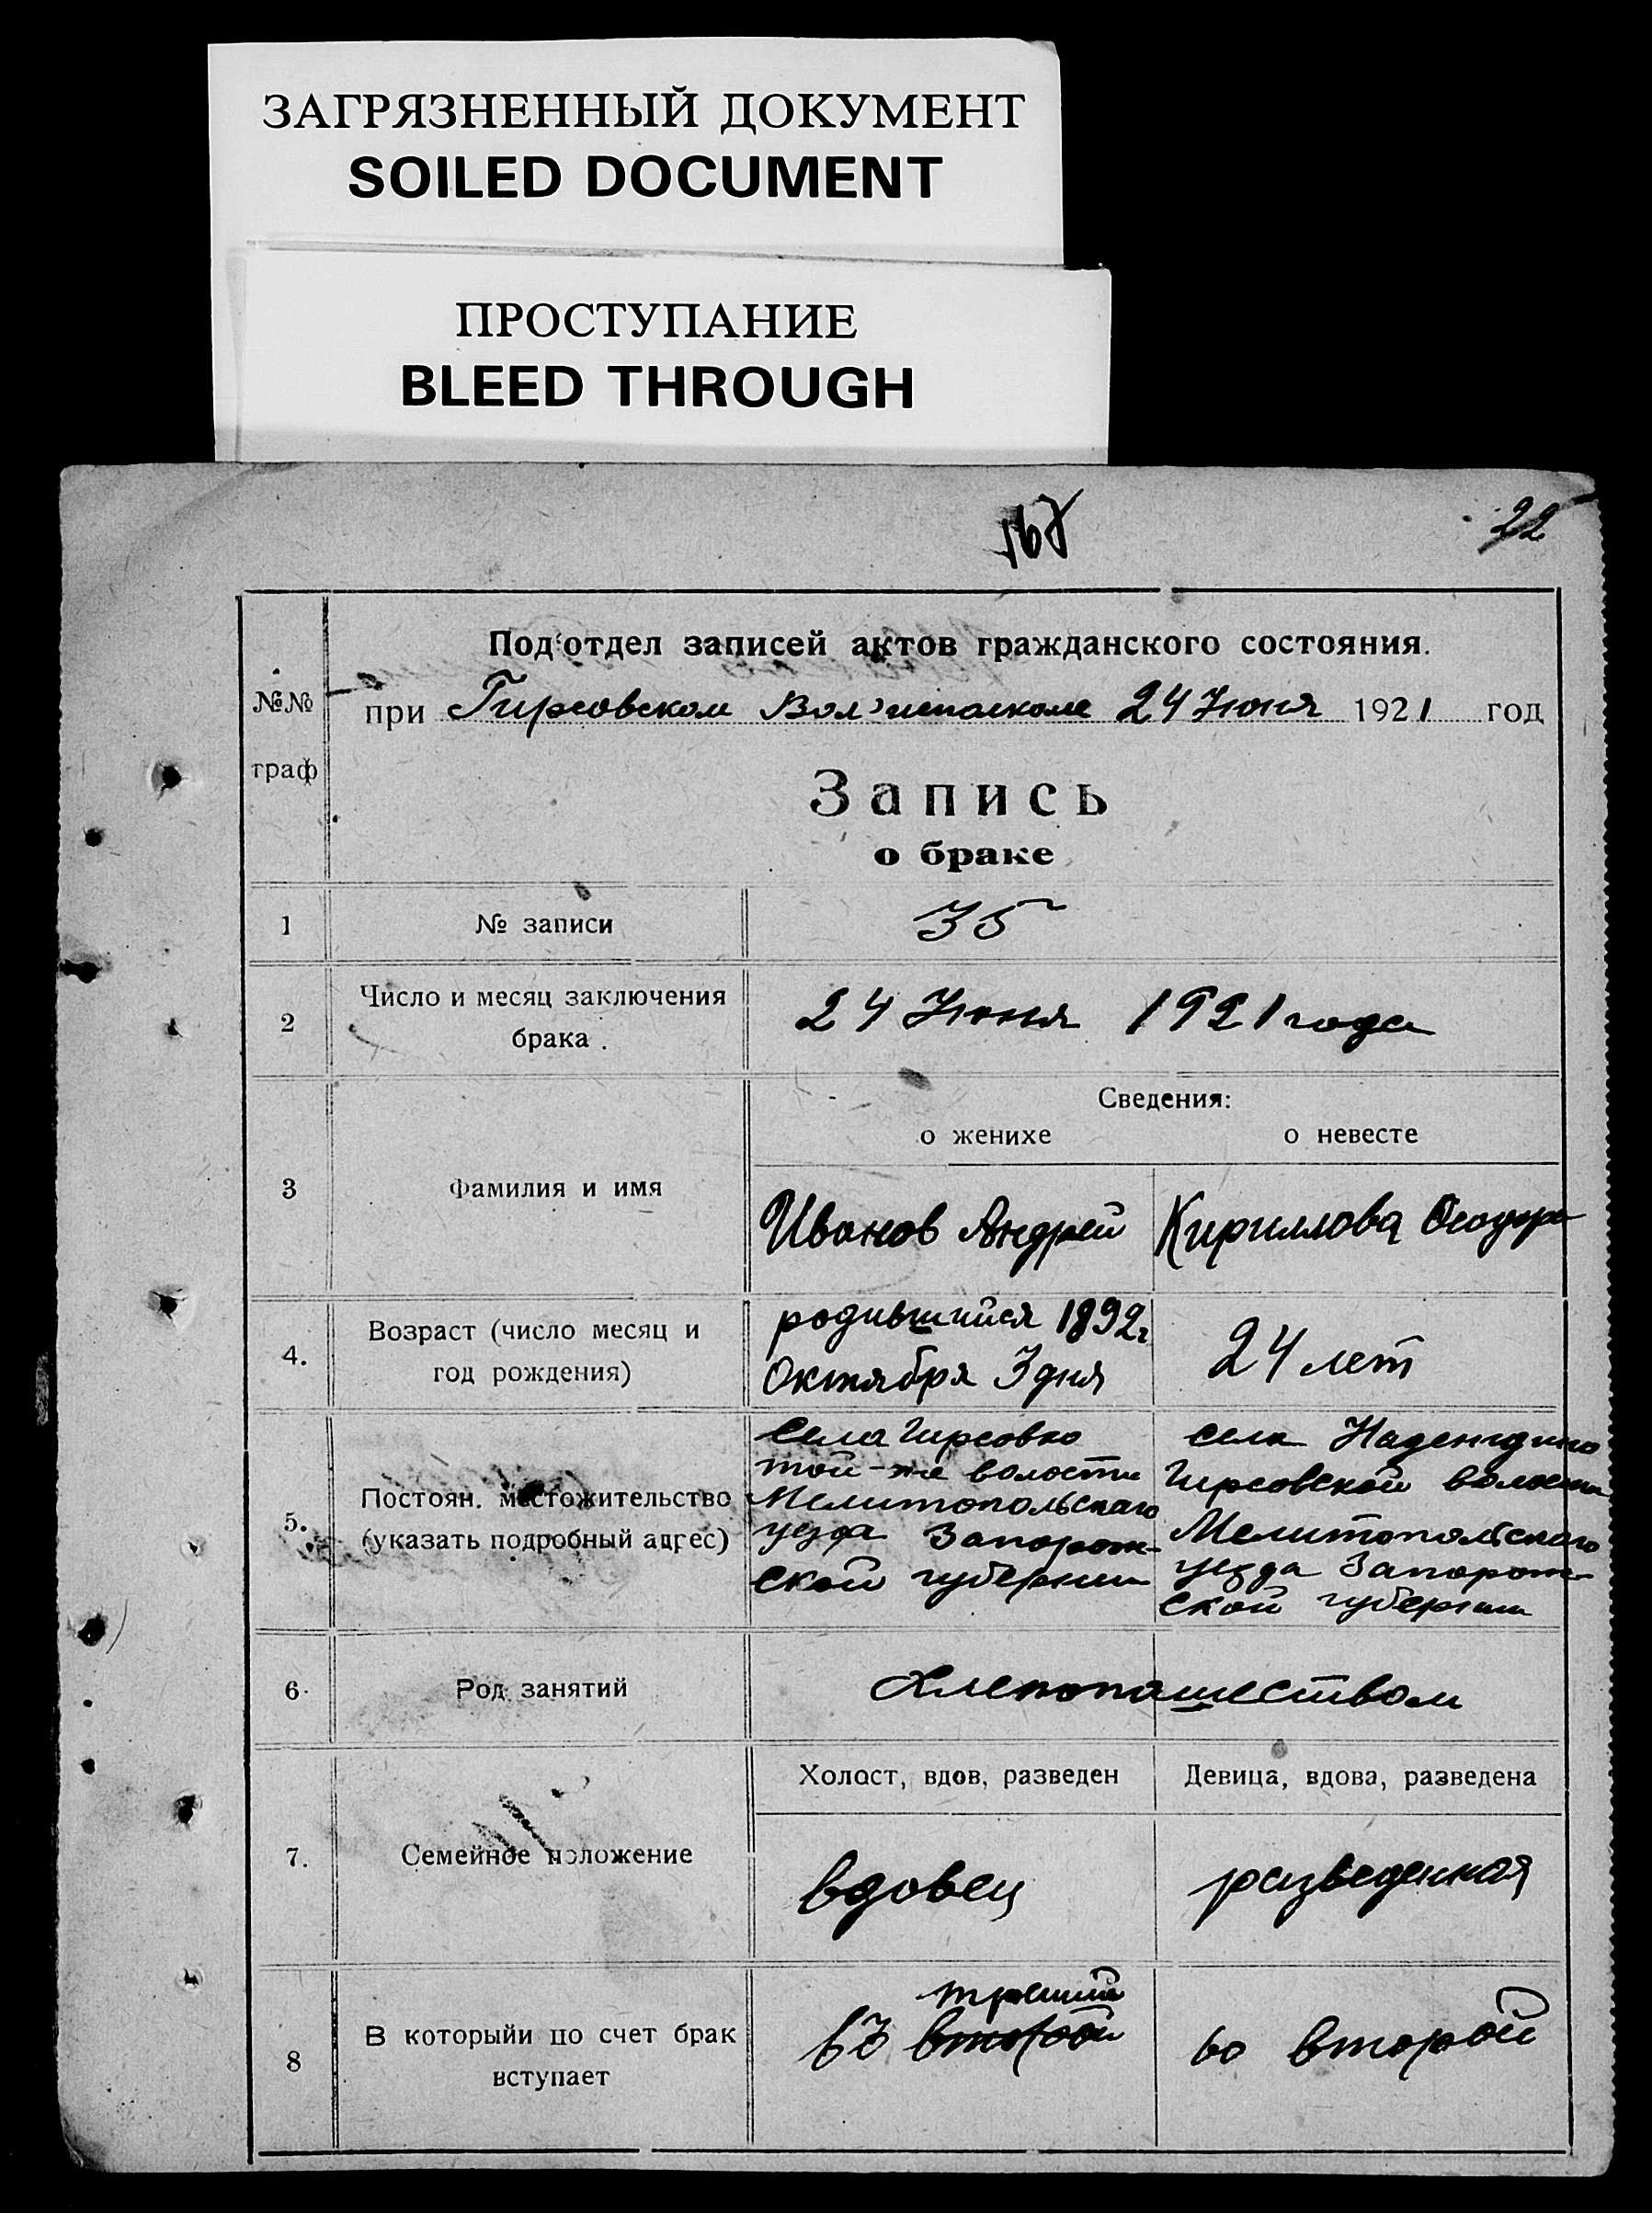 ЗАГРЯЗНЕННЫЙ ДОКУМЕНТ
SOILED DOCUMENT
ПРОСТУПАНИЕ
BLEED THROUGH
22
№№
граф
Под'отдел записей актов гражданского состояния.
при Гирсовском Вол'исполкоме 24 Июня 1921 год
Запись
о браке
1 № записи 35
2 Число и месяц заключения
брака. 24 Июня 1921 года
Сведения:
о женихе о невесте
3 Фамилия и имя Иванов Андрей Кириллова
4. Возраст (число месяц и
год рождения)
родившийся 1892 г
Октября 3 дня
24 лет
5. Постоян. местожительство
(указать подробный адрес)
села Гирсовко
той-же волости
Мелитопольскаго
уезда Запорож-
ской губернии
села
Гирсовской волости
Мелитопольскаго
уезда Запорож-
ской губернии
6. Род занятий Хлепопашеством
Холост, вдов, разведен Девица, вдова, разведена
7. Семейное положение вдовец разведенная
8 В которыйи по счет брак
вступает
третий
въ второй во второй